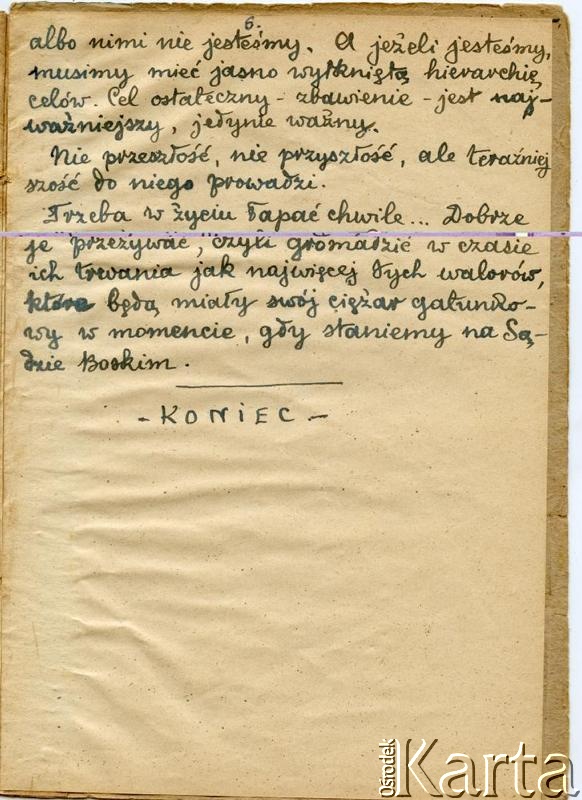 6.
albo nimi nie jesteśmy. A jeżeli jesteśmy,
musimy mieć jasno wytkniętą hierarchię
celów. Cel ostateczny - zbawienie - jest naj-
ważniejszy, jedynie ważny.
Nie przeszłość, nie przyszłość, ale teraźniej
szość do niego prowadzi.
Trzeba w życiu łapać chwile... Dobrze
je "przeżywać," czyli gromadzić w czasie
ich trwania jak najwięcej tych walorów,
które będą miały swój ciężar gatunko-
wy w momencie, gdy staniemy na Są-
dzie Boskim.
- KONIEC -
Ośrodek
Karta